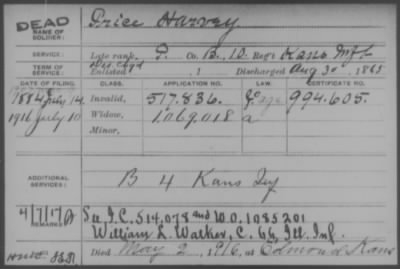 DEAD
NAME OF SOLDIER:
Price Harvey
SERVICE:
Late rank, P. Co. B, 10 Reg't Kans Inf
TERM OF SERVICE:
Enlisted , 1 Discharged Aug 30, 1865
DATE OF FILING. CLASS. APPLICATION NO. LAW. CERTIFICATE NO.
1884 July 14. Invalid, 517.836. 994.605.
1916 July 10 Widow, 1.069.018 a
Minor,
ADDITIONAL SERVICES:
B 4 Kans Inf
4/7/17
REMARKS:
See I.C. 514,078 and W.O. 1085201
William L. Walker, C. 66, Ill. Inf.
Died May 2, 1916, at Edmond Kans